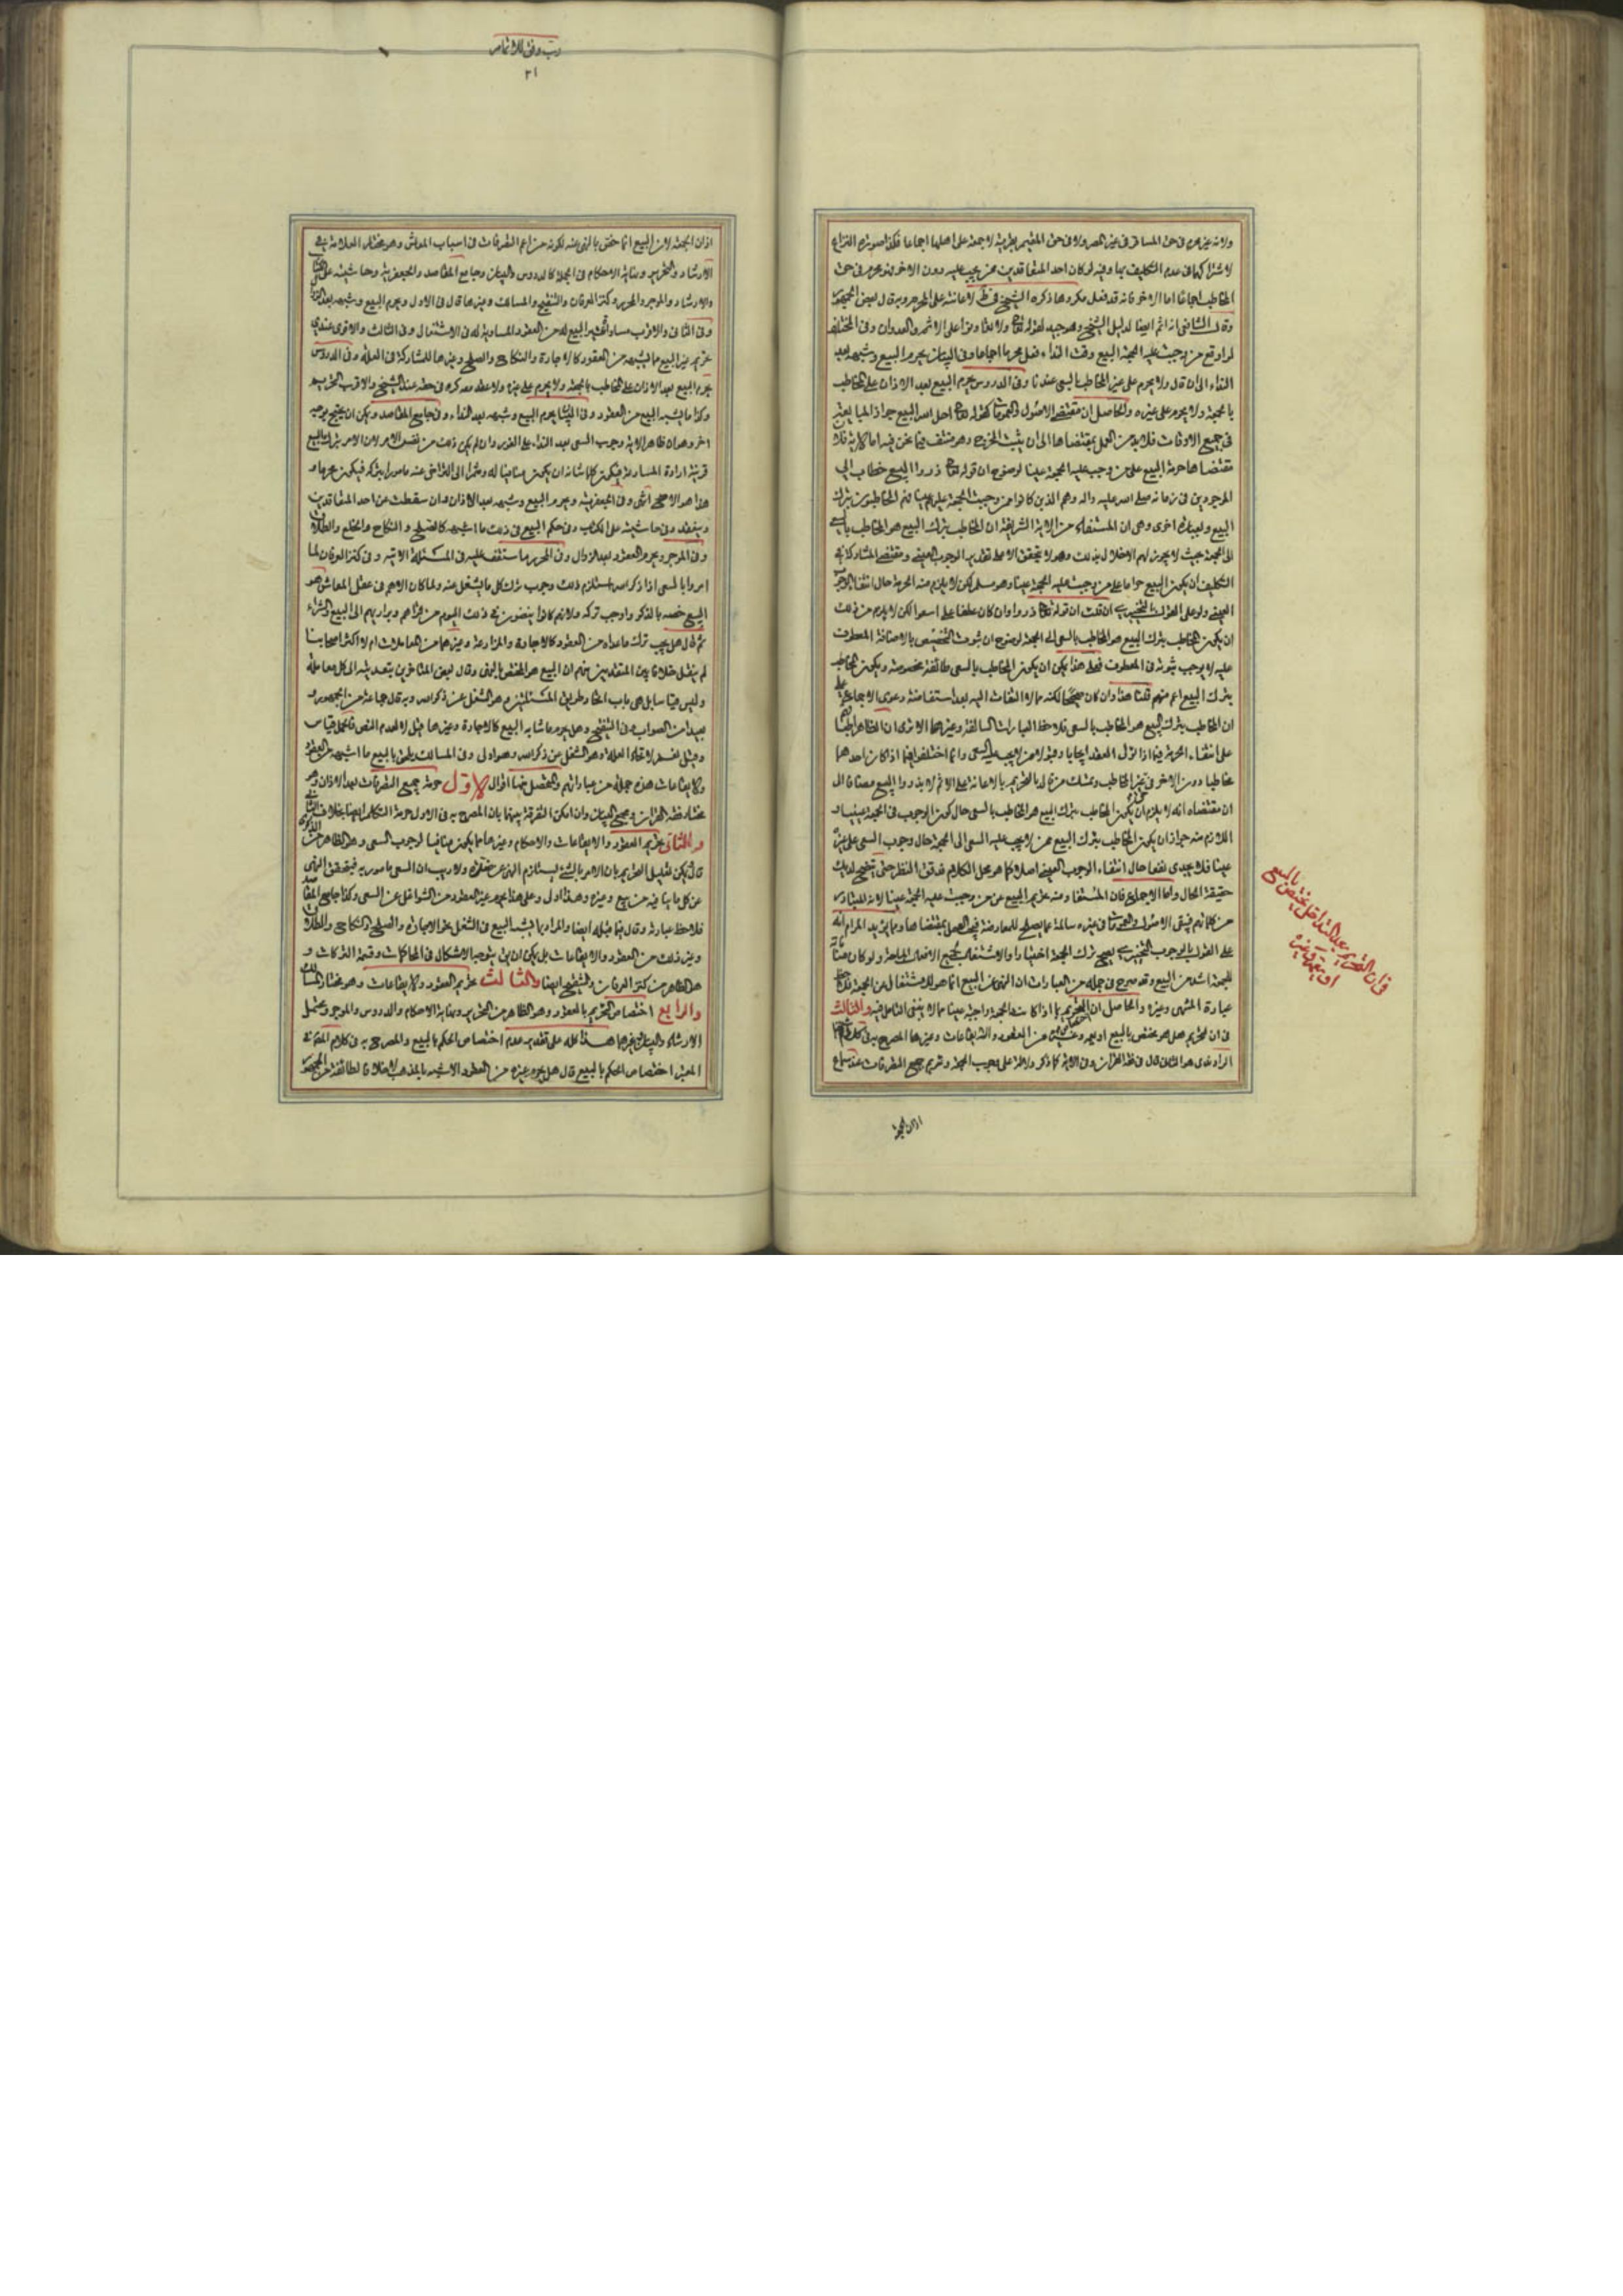 ولانه غير محرم في حق المسافر في غير المصر ولا في حق المقيم بقرية لا جمعة على اهلها اجماعا فكذا صورة النزاع
لاشتراكهما في عدم التكليف بها وفيه لو كان احد المتعاقدين ممن يجب عليه دون الاخر فهو محرم في حق
المخاطب اجماعا اما الاخر فانه قد فعل مكروها ذكره الشيخ في ط لاعانته على المحرم وبه قال بعض الجمهور
وقال الشافعي انه اثم ايضا لدليل الشيخ وهو جيد لقوله تعالى ولا تعاونوا على الاثم والعدوان وفي المختلف
لو اوقع من وجبت عليه الجمعة البيع وقت النداء فعل محرما اجماعا وفي البيان يحرم البيع وشبهه بعد
النداء الى ان قال ولا يحرم على غير المخاطب بالسعي عندنا وفي الدروس يحرم البيع بعد الاذان على المخاطب
بالجمعة ولا يحرم على غيره والحاصل ان مقتضى الاصول والعمومات كقوله تعالى احل الله البيع جواز المبايعة
في جميع الاوقات فلا بد من العمل بمقتضاها الى ان يثبت الخروج وهو منتف فيما نحن فيه اما الاية فلان
مقتضاها حرمة البيع على من وجب عليه الجمعة عينا لوضوح ان قوله تعالى ذروا البيع خطاب الى
الموجودين في زمانه صلى الله عليه واله وهم الذين كانوا ممن وجبت الجمعة عليهم عينا فهم المخاطبون بترك
البيع وبعبارة اخرى وهي ان المستفاد من الاية الشريفة ان المخاطب بترك البيع هو المخاطب بالسعي
الى الجمعة بحيث لا يجوز لهم الاخلال بذلك وهو لا يتحقق الا على تقدير الوجوب العيني ومقتضى المشاركة في
التكليف ان يكون البيع حراما على من وجبت عليه الجمعة عينا وهو مسلم لكن لا يلزم منه الحرمة حال انتفاء الوجوب
العيني ولو على القول بالتخيير ان قلت ان قوله تعالى ذروا وان كان عطفا على اسعوا لكن لا يلزم من ذلك
ان يكون المخاطب بترك البيع هو المخاطب بالسعي الى الجمعة لوضوح ان ثبوت التخصيص بالاضافة المعطوف
عليه لا يوجب ثبوته في المعطوف فعلى هذا يمكن ان يكون المخاطب بالسعي طائفة مخصوصة ويكون المخاطب
بترك البيع اعم منهم قلنا هذا وان كان صحيحا لكنه مما لا التفات اليه بعد استفاضة دعوى الاجماع على
ان المخاطب بترك البيع هو المخاطب بالسعي فلاحظ العبارات السالفة وغيرها الا ترى ان الظاهر اطباقهم
على انتفاء الحرمة فيما اذا تولى العقد ايجابا وقبولا من لا يجب عليه السعي وانما اختلفوا فيما اذا كان احدهما
مخاطبا دون الاخر في غير المخاطب وتمسك من قال بالتحريم بالاعانة على الاثم لا بذروا البيع مضافا الى
ان مقتضاه انه لا يلزم ان يكون المخاطب بترك البيع هو المخاطب بالسعي حال كون الوجوب في الجمعة عينيا و
اللازم منه جواز ان يكون المخاطب بترك البيع ممن لا يجب عليه السعي الى الجمعة حال وجوب السعي على غيره
عينا فلا يجدي نفعا حال انتفاء الوجوب العيني اصلا كما هو محل الكلام فدقق النظر حتى يتضح لديك
حقيقة الحال واما الاجماع فلان المستفاد منه تحريم البيع عن من وجبت عليه الجمعة عينا لانه المتبادر
من كلماتهم فبقى الاصول والعمومات في غيره سالمة عما يصلح للمعارضة فيجب العمل بمقتضاها ومما يؤيد المرام انه
على القول بالوجوب التخييري يصح ترك الجمعة اختيارا والاشتغال بجميع الافعال المباحة ولو كان منافاته
للجمعة اشد من البيع وقد صرح في جملة من العبارات ان النهي عن البيع انما هو للاشتغال عن الجمعة فلاحظ
عبارة المنتهى وغيره والحاصل ان التحريم بما اذا كانت الجمعة واجبة عينا مما لا ينبغي التامل فيه والثالث
في ان التحريم هل هو مختص بالبيع او يعمه وغيره من العقود والايقاعات وغيرها المصرح به في كلام
الراوندي هو الثاني قال في فقه القران وفي الاية كما ذكر دلالة على وجوب الجمعة وتحريم جميع التصرفات عند سماع
اذان الجمعة
في ان التحريم بعد النداء هل يختص بالبيع
او يعمه وغيره
رب وفق للاتمام
٢١
اذان الجمعة لان البيع انما خص بالنهي عنه لكونه من اعم التصرفات في اسباب المعاش وهو مختار العلامة في
الارشاد والتحرير ونهاية الاحكام في الجملة كالدروس والبيان وجامع المقاصد والجعفرية وحاشيته على الكتاب
والارشاد والموجز والمحرر وكنز العرفان والتنقيح والمسالك وغيرها قال في الاول ويحرم البيع وشبهه بعد النداء
وفي الثاني والاقرب مساواة شبه البيع له من العقود المساوية له في الاشتغال وفي الثالث والاقوى عندي
تحريم غير البيع مما يشبهه من العقود كالاجارة والنكاح والصلح وغيرها للمشاركة في العلة وفي الدروس
يحرم البيع بعد الاذان على المخاطب بالجمعة ولا يحرم على غيره ولا عقد معه كره في حقه عند الشيخ والاقرب التحريم
وكذا ما يشبه البيع من العقود وفي البيان يحرم البيع وشبهه بعد النداء وفي جامع المقاصد ويمكن ان يحتج بوجه
اخر وهو ان ظاهر الاية وجوب السعي بعد النداء على الفور وان لم يكن ذلك من نفس الامر لان الامر بترك البيع
قرينة ارادة المسارعة فيكون كلما شانه ان يكون منافيا له ومؤخرا الى التراخي عنه مامورا بتركه فيكون محرما و
هذا هو الاصح انتهى وفي الجعفرية ويحرم البيع وشبهه بعد الاذان وان سقطت عن احد المتعاقدين
وينعقد وفي حاشيته على الكتاب وفي حكم البيع في ذلك ما اشبهه كالصلح والنكاح والخلع والطلاق
وفي الموجز ويحرم العقود بعد الزوال وفي المحرر ما ستقف عليه في المسئلة الاتية وفي كنز العرفان لما
امروا بالسعي اذا ذكر الله استلزم ذلك وجوب ترك كل ما يشغل عنه ولما كان الاهم في عقل المعاش هو
البيع خصه بالذكر واوجب تركه ولانهم كانوا ينفضون في ذلك اليوم من قراهم وبواديهم الى البيع والشراء
ثم قال هل يجب ترك ما عداه من العقود كالاجارة والمزارعة وغيرهما من المعاملات ام لا اكثر اصحابنا
لم ينقل خلافا بين المتقدمين منهم ان البيع هو المختص بالنهي وقال بعض المتاخرين بتعديته الى كل معاملة
وليس قياسا بل هي باب اتحاد طريق المسئلتين وهو الشغل عن ذكر الله وبه قال جماعة من الجمهور و
بعيدا من الصواب وفي التنقيح وهل يحرم ما شابه البيع كالاجارة وغيرها قيل لا لعدم النص فالحمل قياس
وقيل نعم لاتحاد العلة وهو الشغل عن ذكر الله وهو اولى وفي المسالك يلحق بالبيع ما اشبهه من العقود
والايقاعات هذه جملة من عباراتهم والمحصل منها اقوال الاول حرمة جميع التصرفات بعد الاذان وهو
مختار فقه القران وصحيح البيان وان امكن التفرقة بينهما بان المصرح به في الاول حرمة التكلم ايضا بخلاف الثاني
والثاني تحريم العقود والايقاعات والاحكام وغيرها مما يكون منافيا لوجوب السعي وهو الظاهر من الذكرى
قال يمكن تعليل التحريم بان الامر بالشيء يستلزم النهي عن ضده ولا ريب ان السعي مامور به فيتحقق النهي
عن كل ما ينافيه من بيع وغيره وهذا اولى وعلى هذا يحرم غير العقود من الشواغل عن السعي وكذا جامع المقاصد
فلاحظ عبارته وقال فيما قبله ايضا والمراد بما يشبه البيع في الشغل نحو الاجارة والصلح والنكاح والطلاق
وغير ذلك من العقود والايقاعات بل يمكن ان يتوجه الاشكال في المحاكمات وقسمة التركات و
هو الظاهر من كنز العرفان والتنقيح ايضا والثالث تحريم العقود والايقاعات وهو مختار المسالك
والرابع اختصاص التحريم بالعقود وهو الظاهر من التحرير ونهاية الاحكام والدروس والموجز ويحتمل
الارشاد والبيان وغيرهما هذا كله على تقدير عدم اختصاص الحكم بالبيع والمصرح به في كلام المحقق في
المعتبر اختصاص الحكم بالبيع قال هل يحرم غيره من العقود الاشبه بالمذهب لا خلافا لطائفة من الجمهور